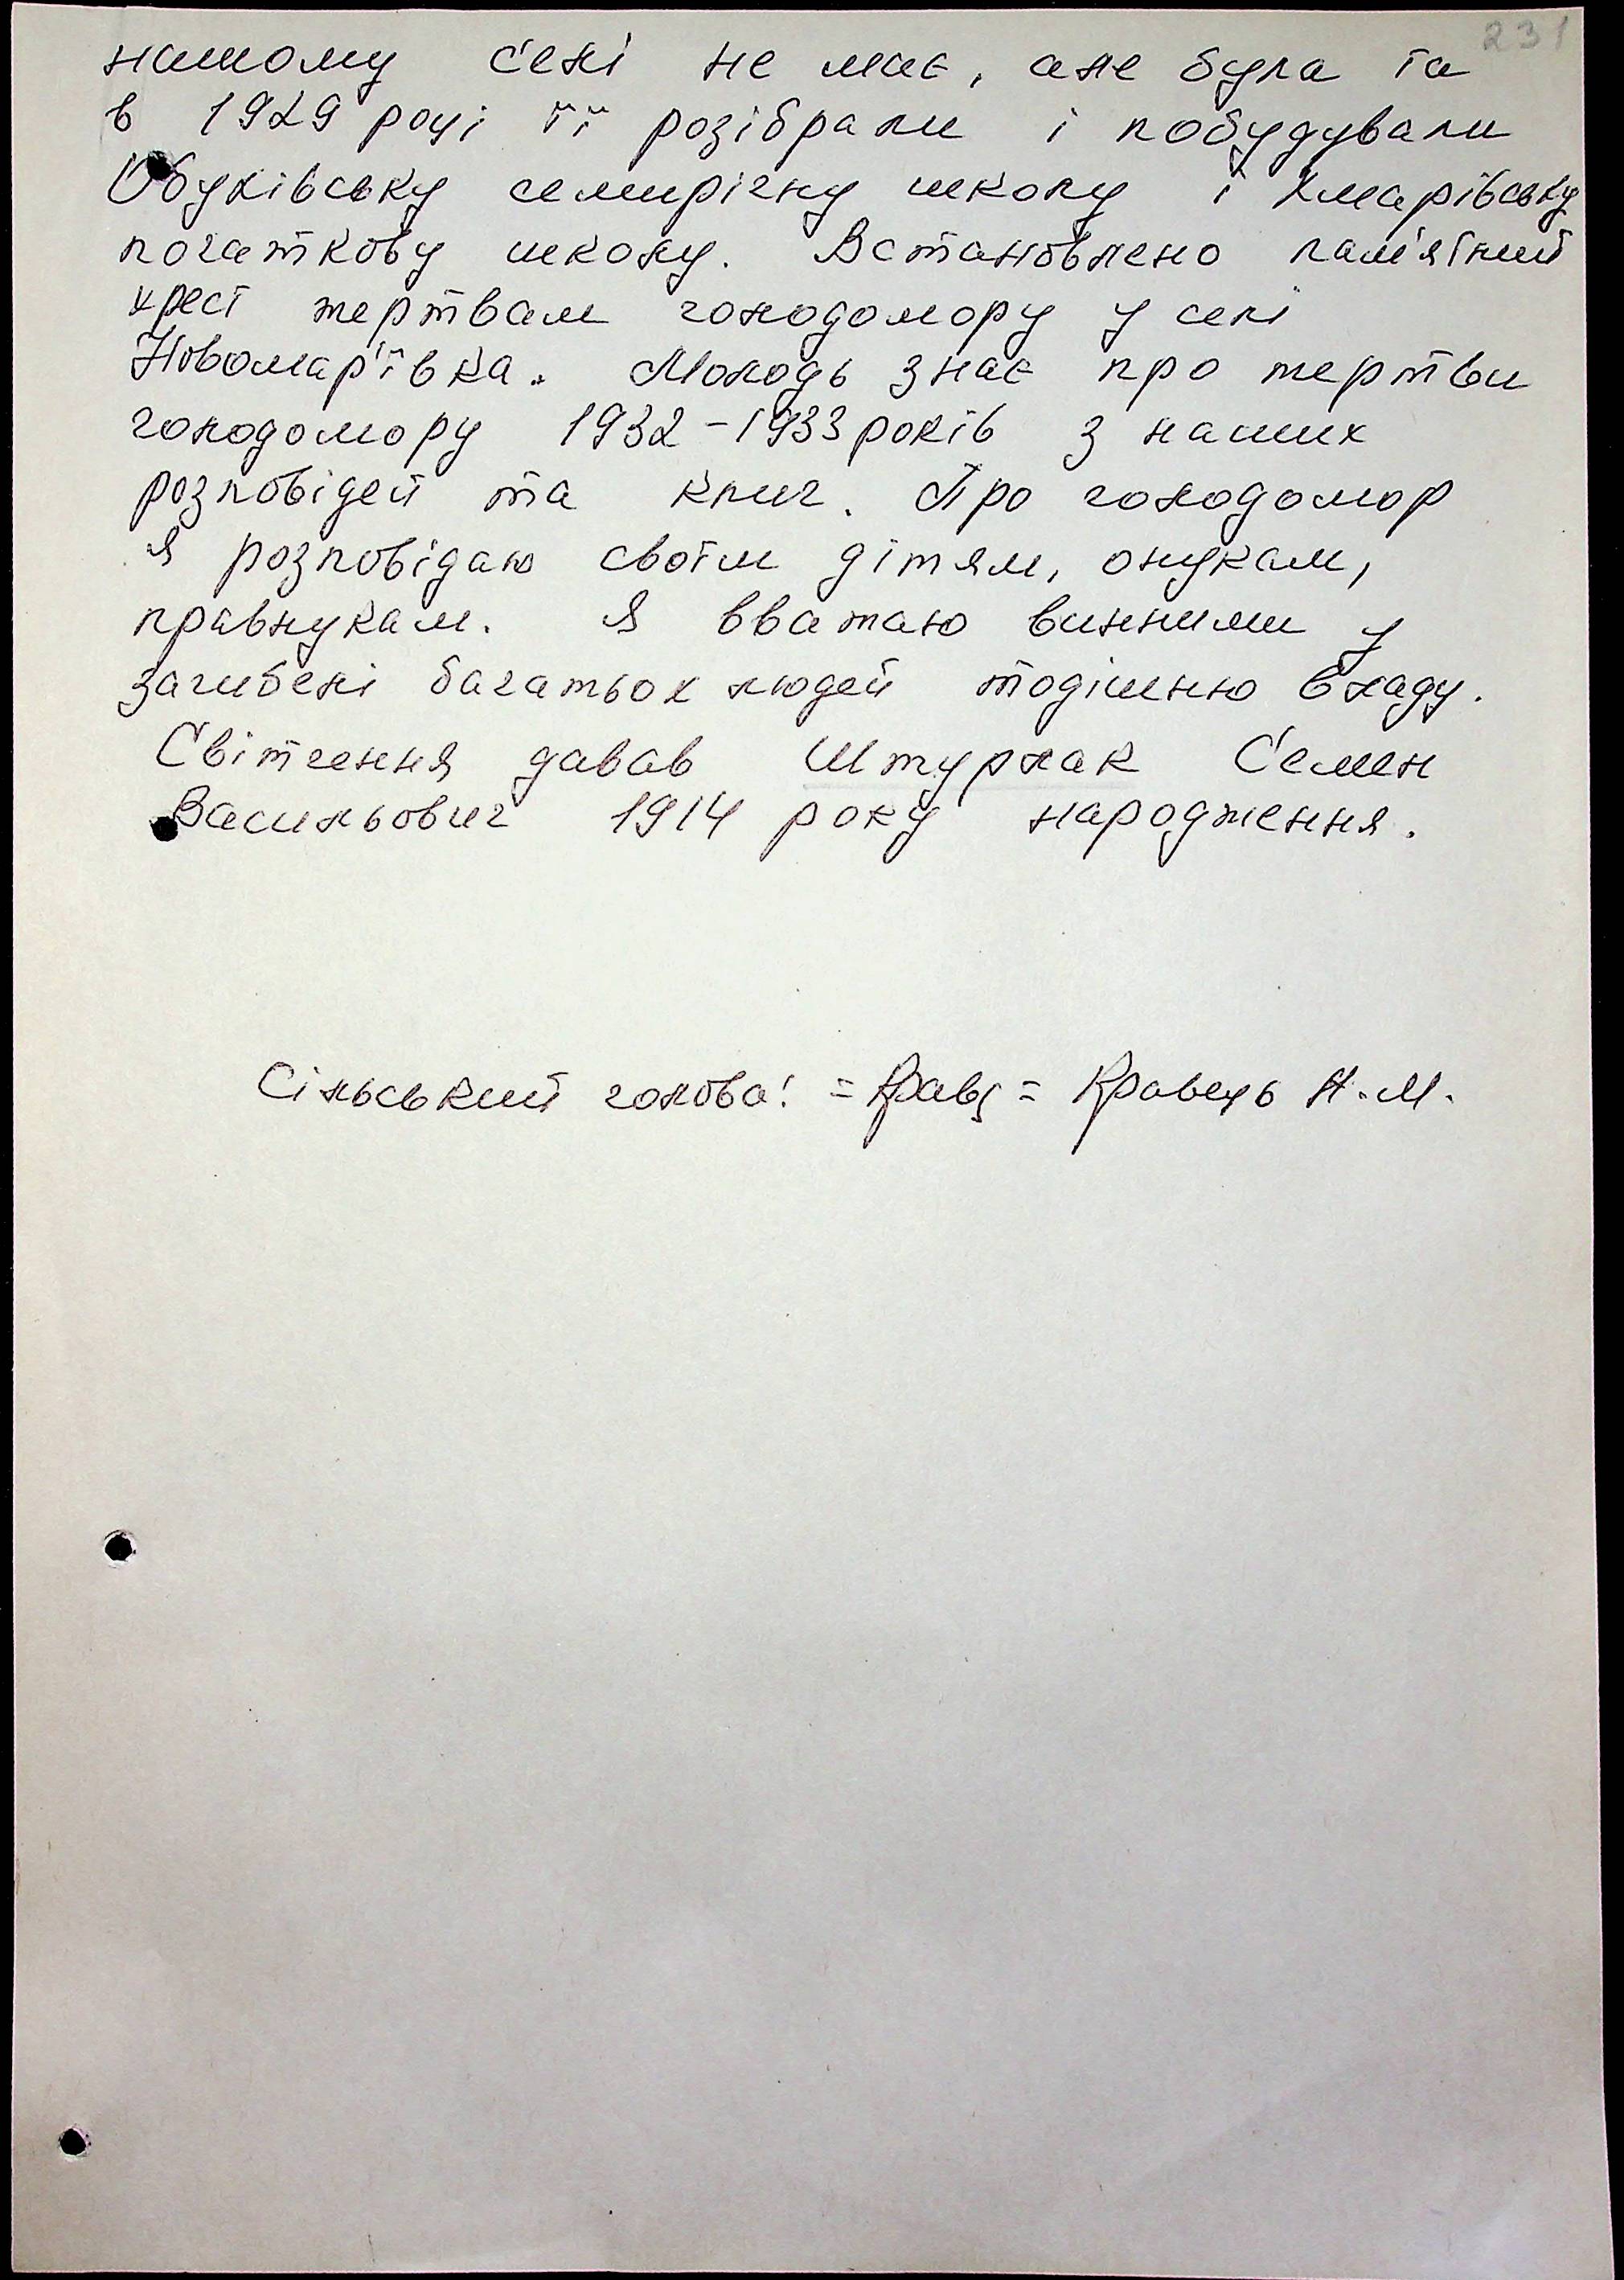 231
нашому селі не має, але була та
в 1929 році її розібрали і побудували
Обухівську семирічну школу і Хмарівську
початкову школу. Встановлено пам'ятний
хрест жертвам голодомору у селі
Новомар'ївка. Молодь знає про жертви
голодомору 1932-1933 років з наших
розповідей та книг. Про голодомор
я розповідаю своїм дітям, онукам,
правнукам. Я вважаю винними у
загибелі багатьох людей тодішню владу.
Світчення давав Штурлак Семен
Васильович 1914 року народження.
Сільський голова: = Кравц = Кравець Н.М.